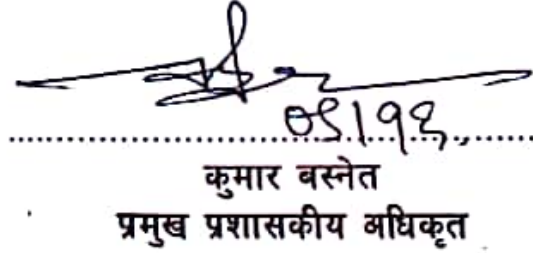 ०९।१६
कुमार बस्नेत
प्रमुख प्रशासकीय अधिकृत